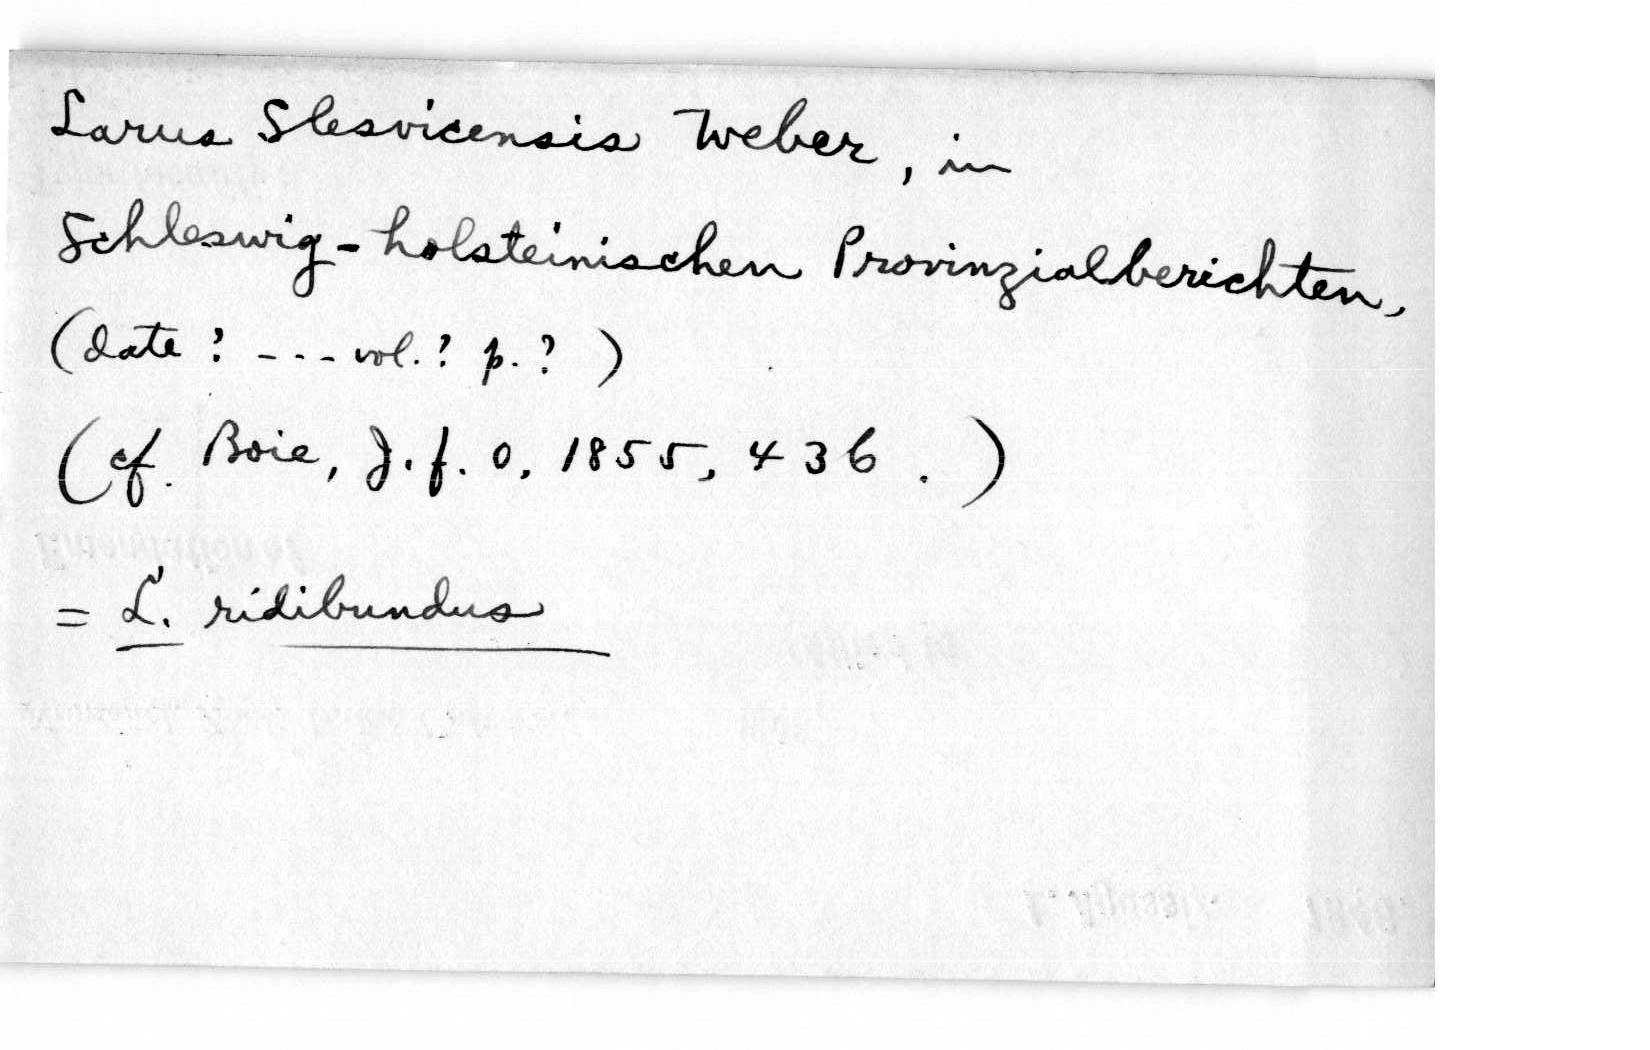 Larus Slesvicensis Weber, in
Schleswig-holsteinischen Provinzialberichten,
(date? --- vol.? p.?)
(cf. Boie, J.f.O, 1855, 436.)
= L. ridibundus